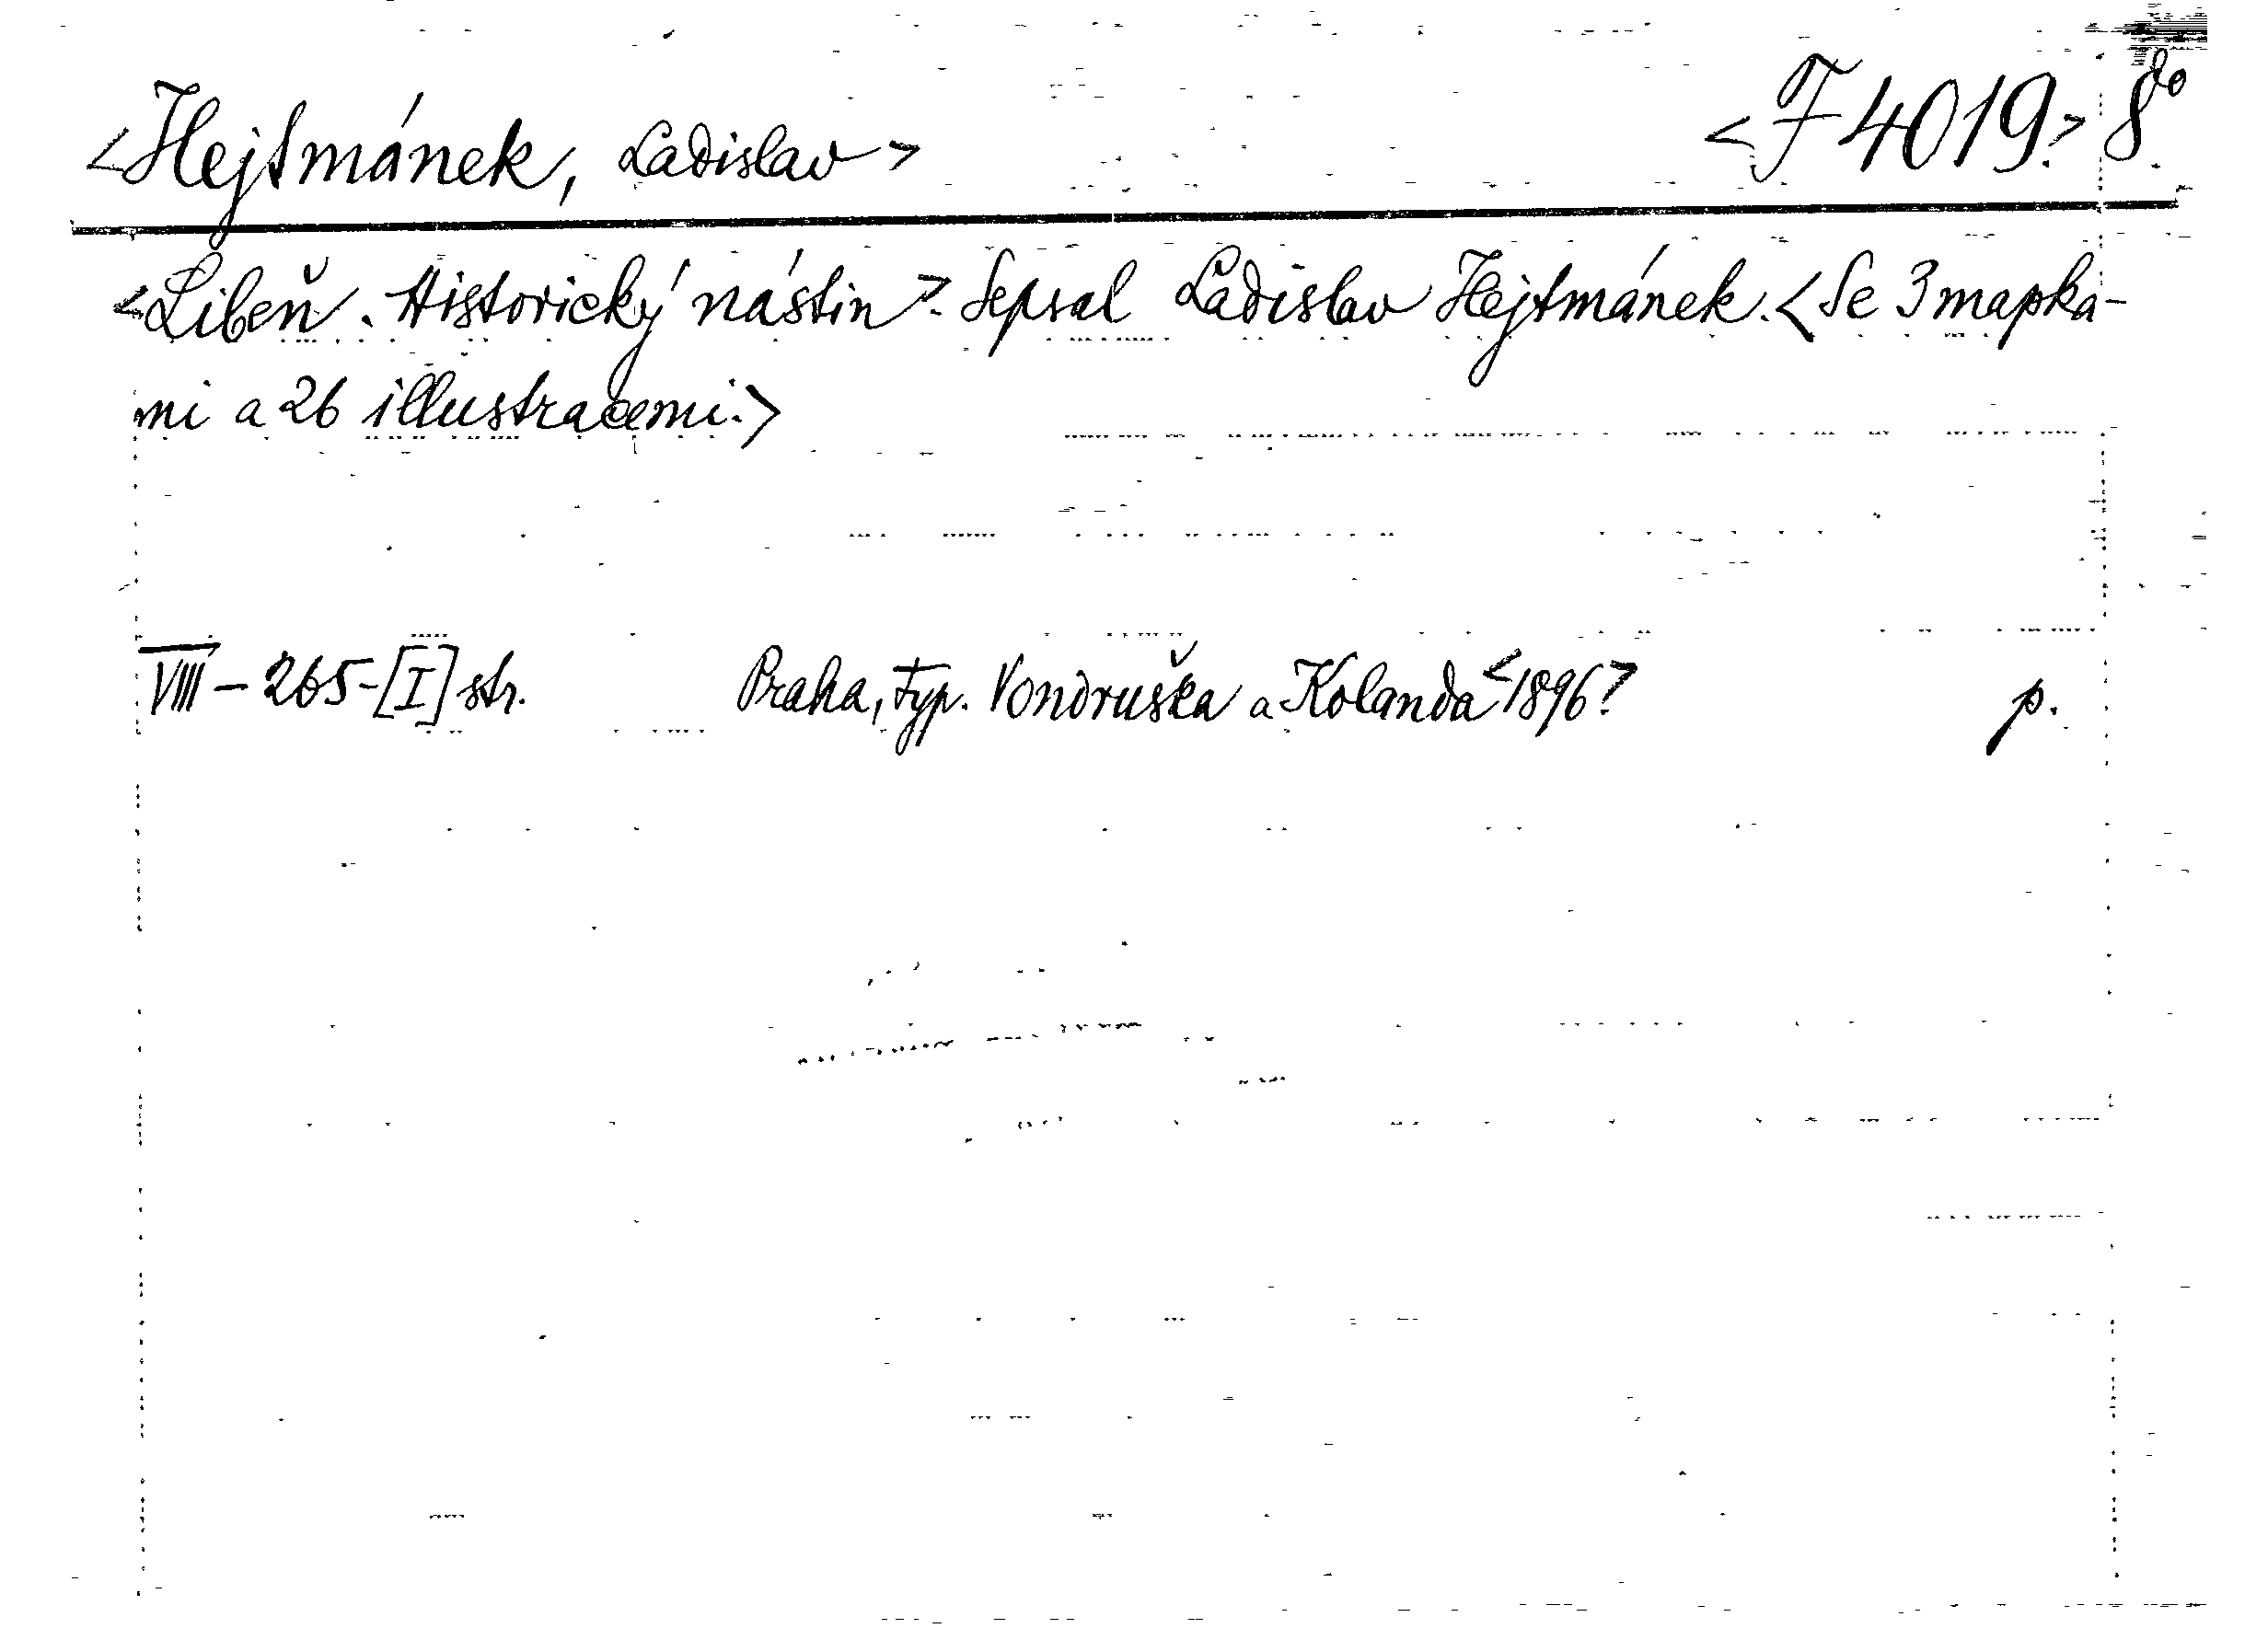 <Hejtmánek, Ladislav> <F 4019.> 8°
<Libeň. Historický nástin>. Sepsal Ladislav Hejtmánek. <Se 3 mapka-
mi a 26 illustracemi.>
VIII - 265 - [I] str. Praha, typ. Vondruška a Kolanda <1896> p.